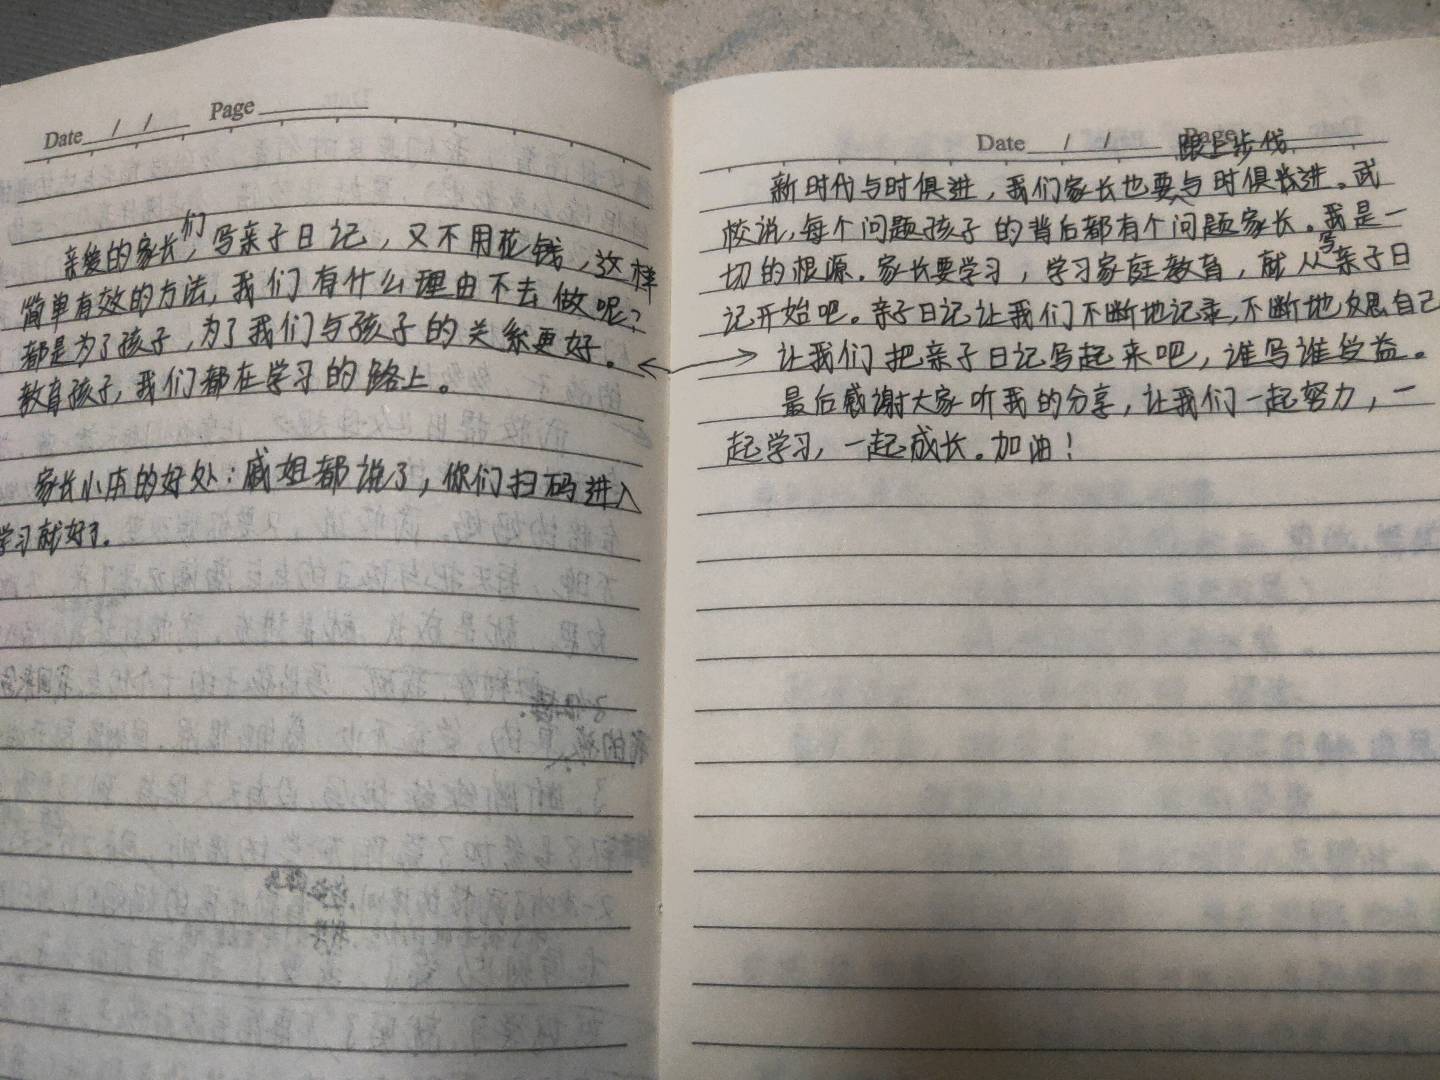 Date / / Page
亲爱的家长们，写亲子日记，又不用花钱，这样
简单有效的方法，我们有什么理由不去做呢？
都是为了孩子，为了我们与孩子的关系更好。
教育孩子，我们都在学习的路上。
家长小本的好处：戚姐都说了，你们扫码进入
学习就好了。
Date / / Page
跟上步伐
新时代与时俱进，我们家长也要与时俱进。武
校说，每个问题孩子的背后都有个问题家长。我是一
切的根源。家长要学习，学习家庭教育，就从写亲子日
记开始吧。亲子日记让我们不断地记录，不断地反思自己
让我们把亲子日记写起来吧，谁写谁受益。
最后感谢大家听我的分享，让我们一起努力，一
起学习，一起成长。加油！